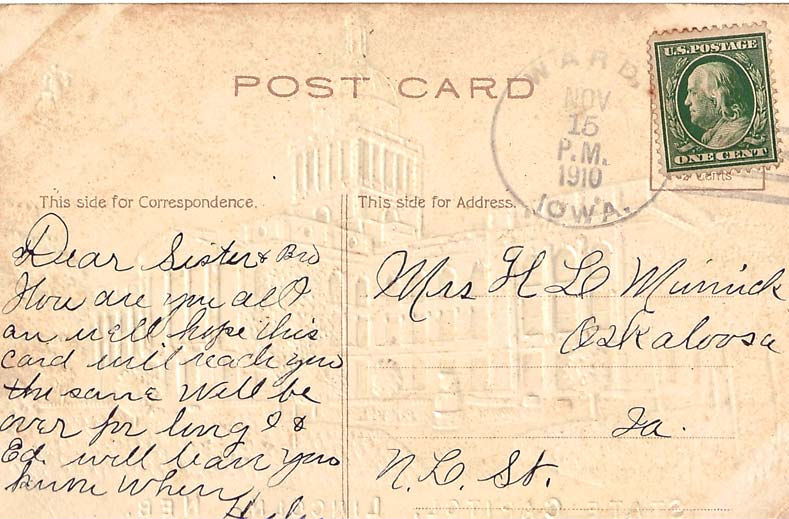 POST CARD
WARD,
NOV
15
P.M.
1910
IOWA.
U.S. POSTAGE
ONE CENT
Cents
This side for Correspondence.
This side for Address.
Dear Sister & Bro
How are you all I
am well hope this
card will reach you
the same Will be
over for long I &
Ed will lean you
know when
Mrs H L Minick
Oskaloosa
Ia.
N. L. St.
STATE CAPITOL, LINCOLN, NEB.